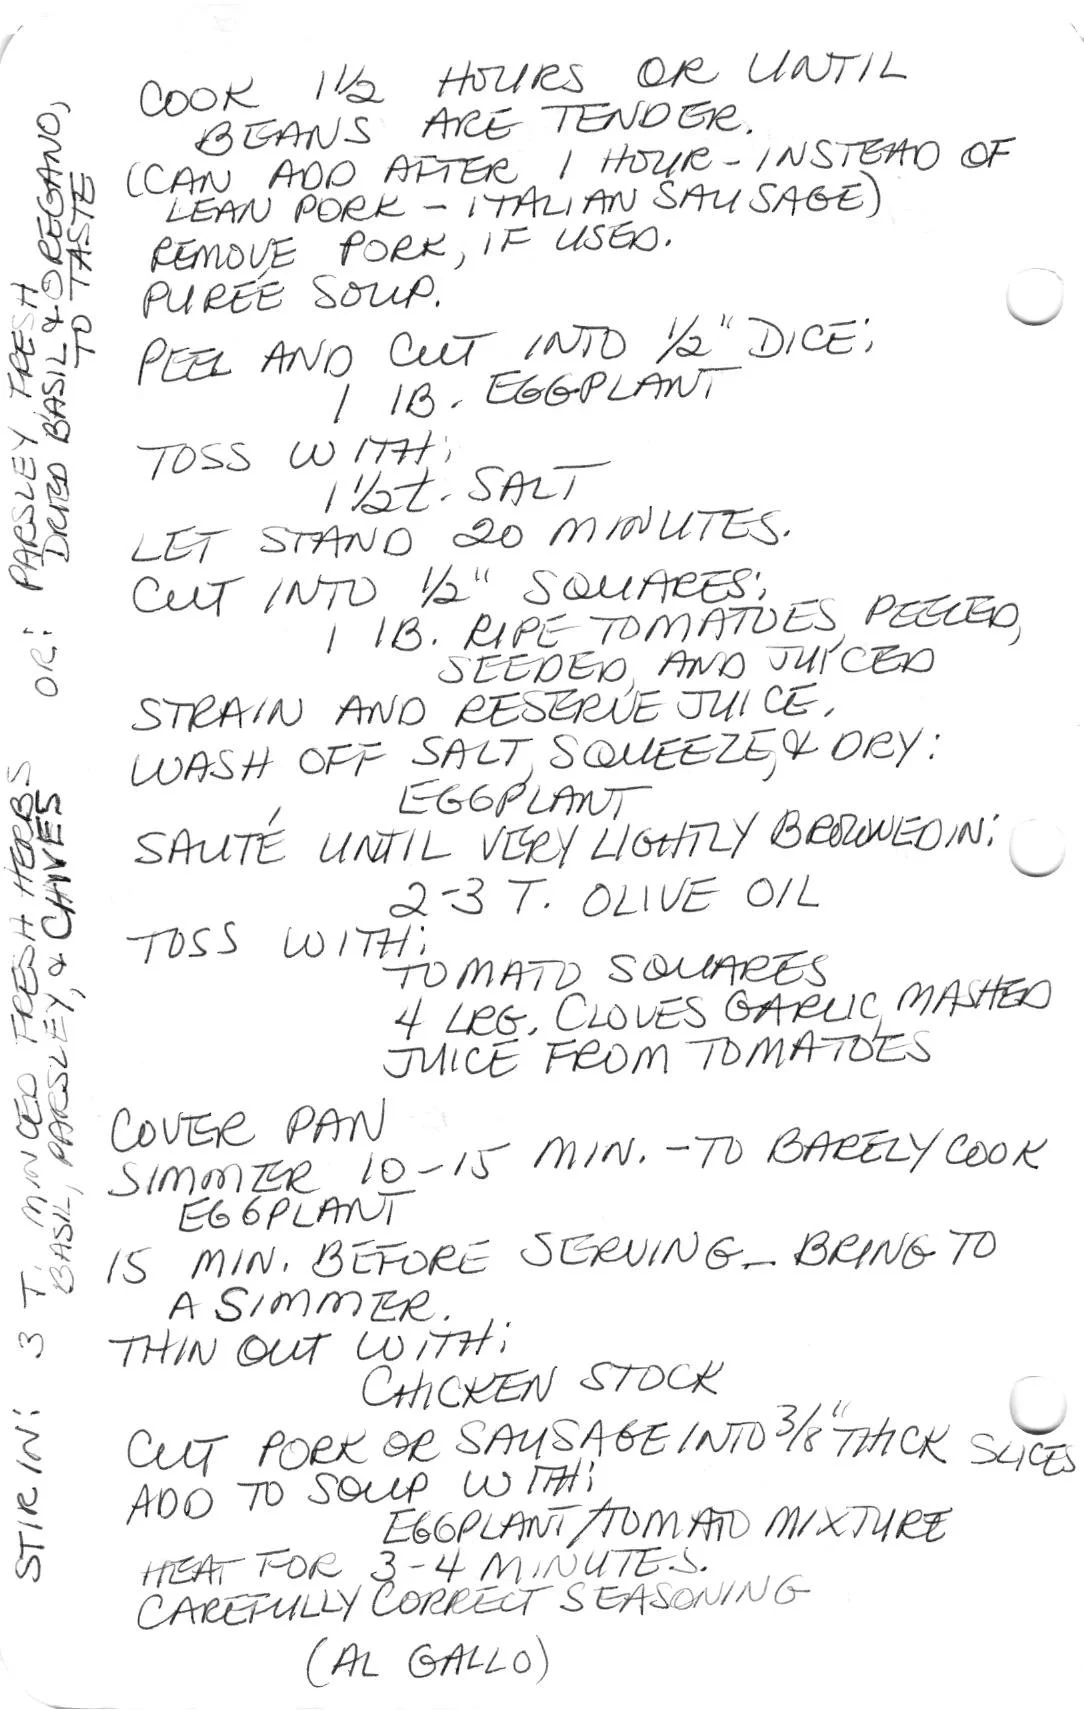 COOK 1 1/2 HOURS OR UNTIL
BEANS ARE TENDER.
(CAN ADD AFTER 1 HOUR - INSTEAD OF
LEAN PORK - ITALIAN SAUSAGE)
REMOVE PORK, IF USED.
PURÉE SOUP.
PEEL AND CUT INTO 1/2" DICE:
1 LB. EGGPLANT
TOSS WITH:
1 1/2 t. SALT
LET STAND 20 MINUTES.
CUT INTO 1/2" SQUARES:
1 LB. RIPE TOMATOES, PEELED,
SEEDED, AND JUICED
STRAIN AND RESERVE JUICE.
WASH OFF SALT, SQUEEZE, & DRY:
EGGPLANT
SAUTÉ UNTIL VERY LIGHTLY BROWNED IN:
2-3 T. OLIVE OIL
TOSS WITH:
TOMATO SQUARES
4 LRG. CLOVES GARLIC, MASHED
JUICE FROM TOMATOES
COVER PAN
SIMMER 10-15 MIN. - TO BARELY COOK
EGGPLANT
15 MIN. BEFORE SERVING - BRING TO
A SIMMER.
THIN OUT WITH:
CHICKEN STOCK
CUT PORK OR SAUSAGE INTO 3/8" THICK SLICES
ADD TO SOUP WITH:
EGGPLANT/TOMATO MIXTURE
HEAT FOR 3-4 MINUTES.
CAREFULLY CORRECT SEASONING
(AL GALLO)
STIR IN: 3 T. MINCED FRESH HERBS OR: PARSLEY, FRESH
BASIL, PARSLEY, & CHIVES DRIED BASIL & OREGANO,
TO TASTE